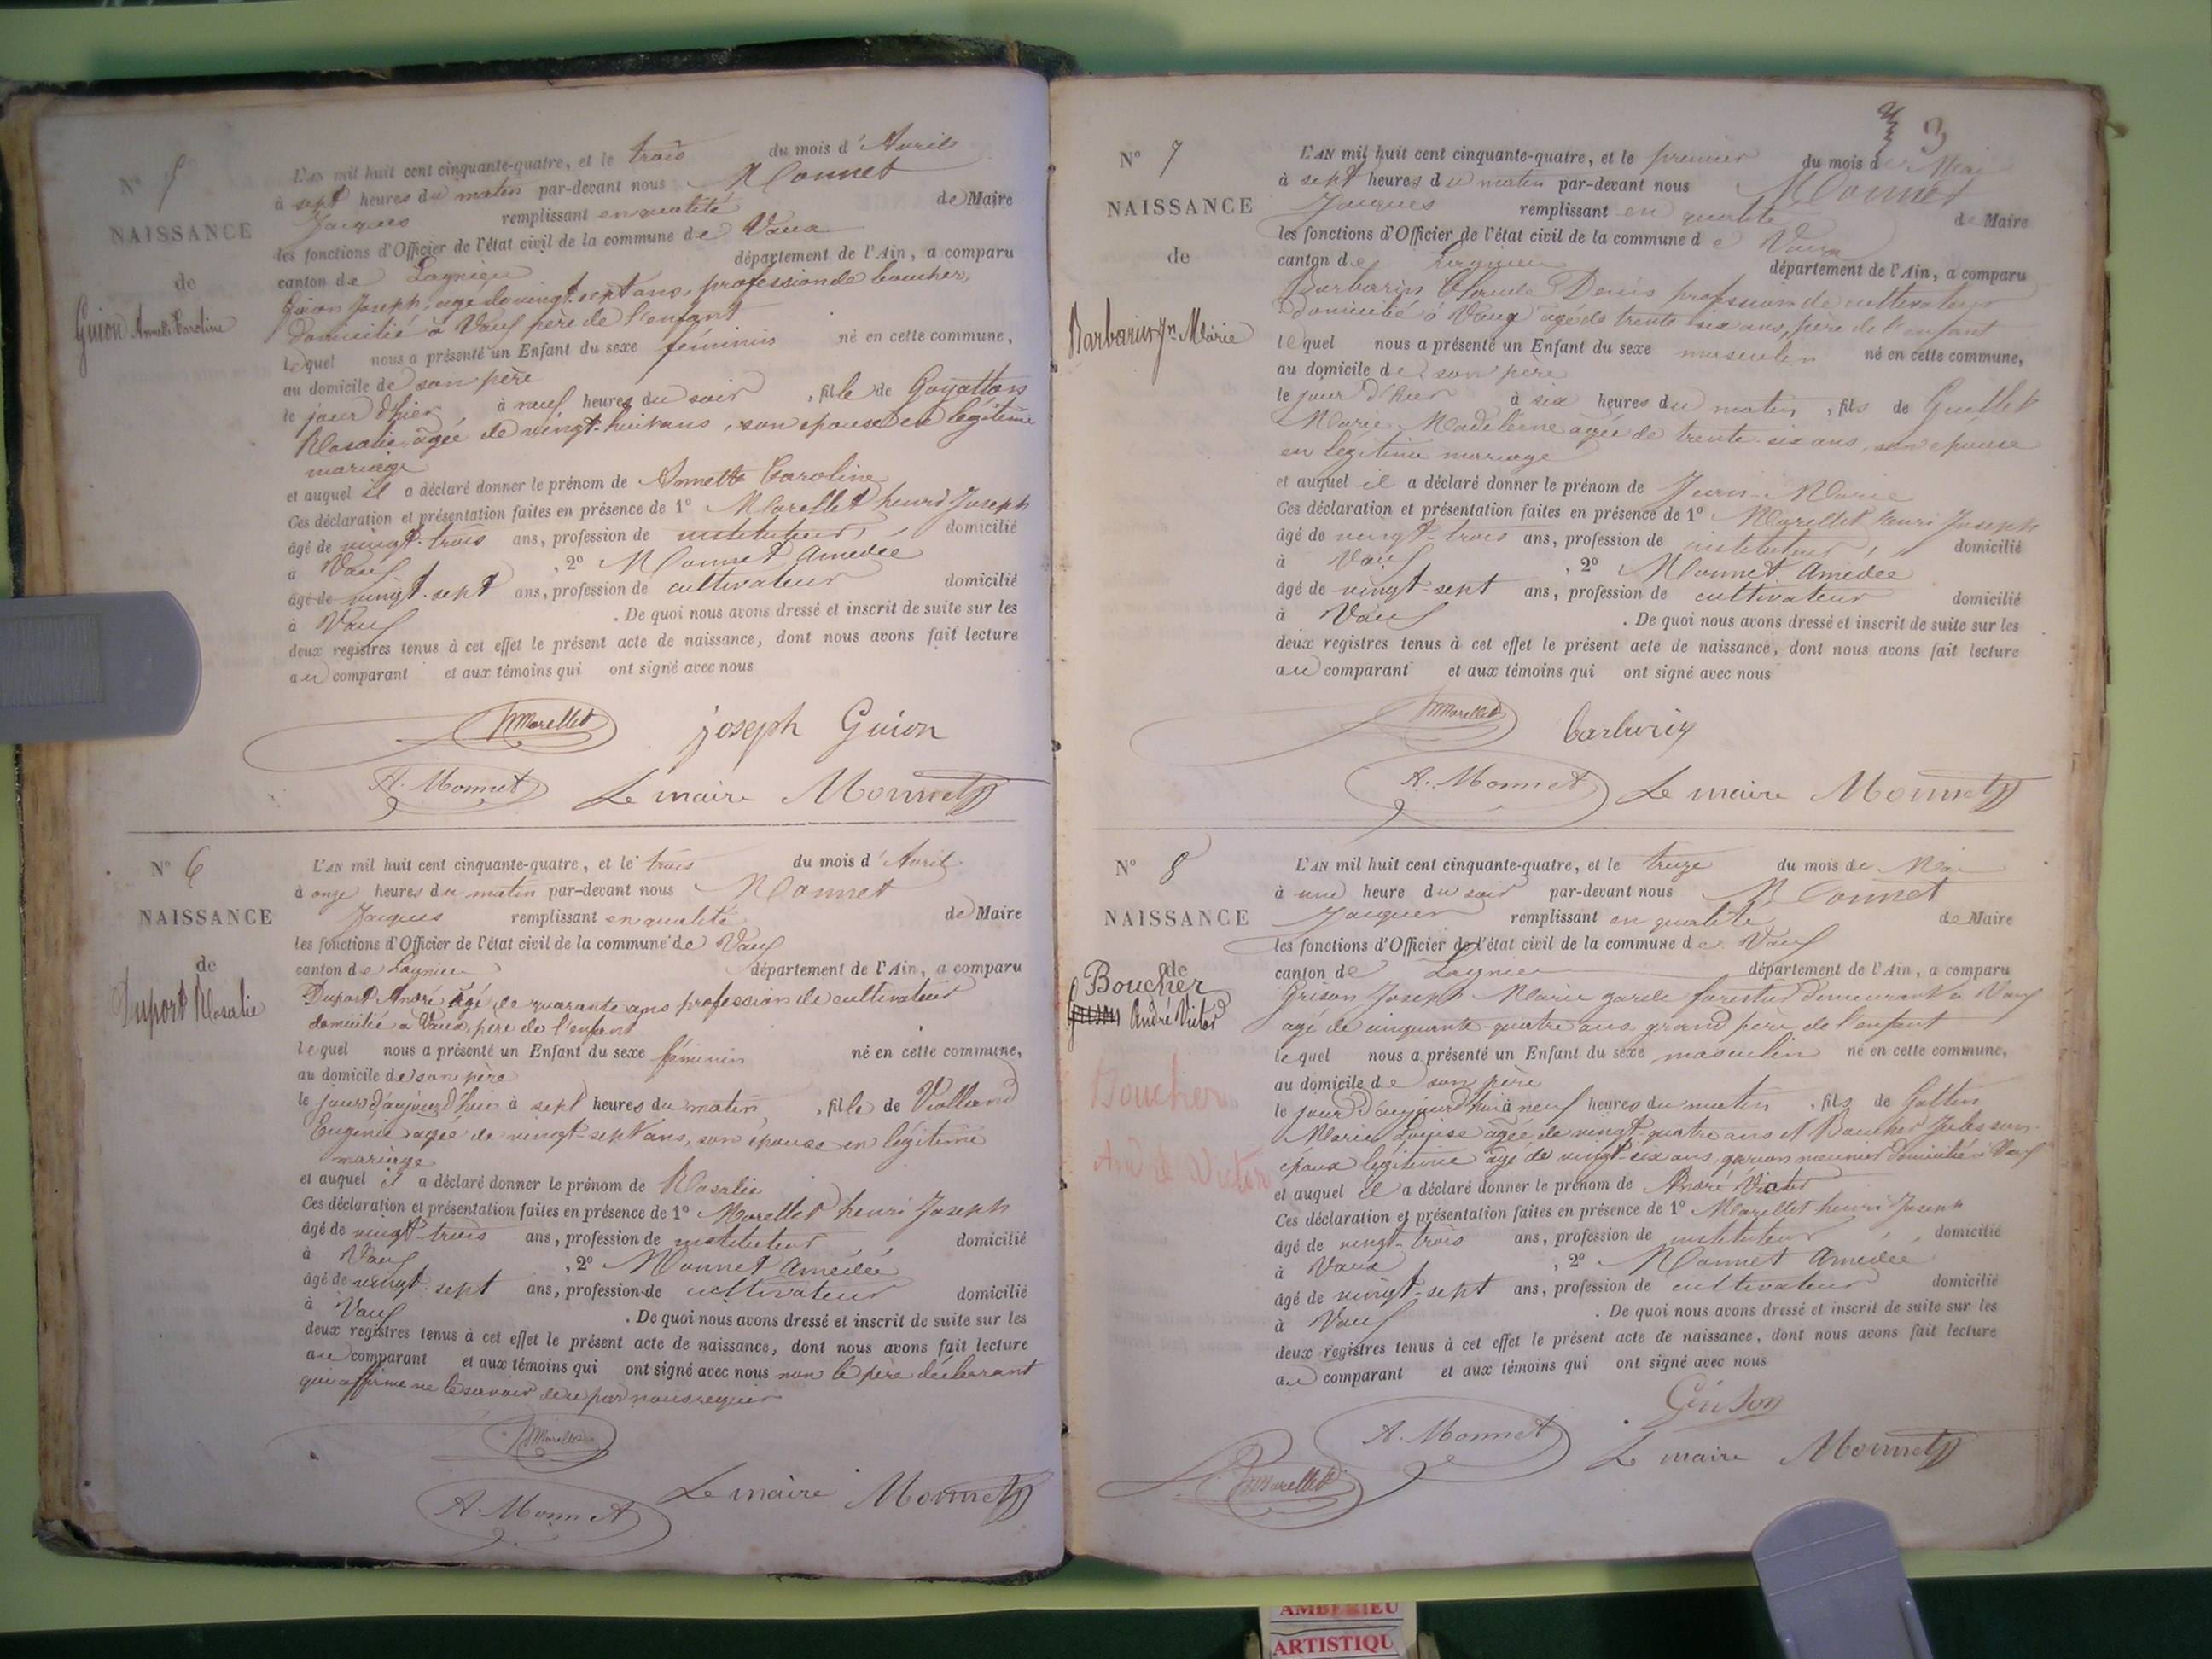 N° 5
NAISSANCE
de
Guion Annette Caroline
L'AN mil huit cent cinquante-quatre, et le trois du mois d'Avril
à sept heures du matin par-devant nous Monnet
Jacques remplissant en qualité de Maire
les fonctions d'Officier de l'état civil de la commune de Vaux
canton de Lagnieu département de l'Ain, a comparu
Guion Joseph, agé de vingt-sept ans, profession de boucher,
domicilié à Vaux père de l'enfant
lequel nous a présenté un Enfant du sexe féminin né en cette commune,
au domicile de son père
le jour d'hier à neuf heures du soir, fille de Goyatton
Rosalie, agée de vingt-huit ans, son épouse en légitime
mariage
et auquel il a déclaré donner le prénom de Annette Caroline
Ces déclaration et présentation faites en présence de 1° Marellet henri Joseph
âgé de vingt-trois ans, profession de instituteur, domicilié
à Vaux, 2° Monnet Amédée
âgé de vingt-sept ans, profession de cultivateur domicilié
à Vaux. De quoi nous avons dressé et inscrit de suite sur les
deux registres tenus à cet effet le présent acte de naissance, dont nous avons fait lecture
au comparant et aux témoins qui ont signé avec nous
hMarellet joseph Guion
A. Monnet Le maire Monnet
N° 6
NAISSANCE
de
Duport Rosalie
L'AN mil huit cent cinquante-quatre, et le trois du mois d'Avril
à onze heures du matin par-devant nous Monnet
Jacques remplissant en qualité de Maire
les fonctions d'Officier de l'état civil de la commune de Vaux
canton de Lagnieu département de l'Ain, a comparu
Duport André âgé de quarante ans profession de cultivateur
domicilié a Vaux, père de l'enfant
lequel nous a présenté un Enfant du sexe féminin né en cette commune,
au domicile de son père
le jour d'aujourd'hui à sept heures du matin, fille de Volland
Eugénie agée de vingt-sept ans, son épouse en légitime
mariage
et auquel il a déclaré donner le prénom de Rosalie
Ces déclaration et présentation faites en présence de 1° Marellet henri Joseph
âgé de vingt-trois ans, profession de instituteur, domicilié
à Vaux, 2° Monnet Amédée
âgé de vingt-sept ans, profession de cultivateur domicilié
à Vaux. De quoi nous avons dressé et inscrit de suite sur les
deux registres tenus à cet effet le présent acte de naissance, dont nous avons fait lecture
au comparant et aux témoins qui ont signé avec nous non le père déclarant
qui affirme ne le savoir de ce par nous requis
hMarellet
A. Monnet Le maire Monnet
3
N° 7
NAISSANCE
de
Barbarin Jn Marie
L'AN mil huit cent cinquante-quatre, et le premier du mois de Mai
à sept heures du matin par-devant nous Monnet
Jacques remplissant en qualité de Maire
les fonctions d'Officier de l'état civil de la commune de Vaux
canton de Lagnieu département de l'Ain, a comparu
Barbarin Claude Denis profession de cultivateur
domicilié à Vaux agé de trente-six ans, père de l'enfant
lequel nous a présenté un Enfant du sexe masculin né en cette commune,
au domicile de son père
le jour d'hier à six heures du matin, fils de Guillet
Marie Madeleine agée de trente-six ans, son épouse
en légitime mariage
et auquel il a déclaré donner le prénom de Jean-Marie
Ces déclaration et présentation faites en présence de 1° Marellet henri Joseph
âgé de vingt-trois ans, profession de instituteur, domicilié
à Vaux, 2° Monnet Amédée
âgé de vingt-sept ans, profession de cultivateur domicilié
à Vaux. De quoi nous avons dressé et inscrit de suite sur les
deux registres tenus à cet effet le présent acte de naissance, dont nous avons fait lecture
au comparant et aux témoins qui ont signé avec nous
hMarellet barbarin
A. Monnet Le maire Monnet
N° 8
NAISSANCE
de
Boucher
André Victor
Boucher
André Victor
L'AN mil huit cent cinquante-quatre, et le treize du mois de Mai
à une heure du soir par-devant nous Monnet
Jacques remplissant en qualité de Maire
les fonctions d'Officier de l'état civil de la commune de Vaux
canton de Lagnieu département de l'Ain, a comparu
Grison Joseph Marie garde forestier demeurant à Vaux
agé de cinquante-quatre ans grand père de l'enfant
lequel nous a présenté un Enfant du sexe masculin né en cette commune,
au domicile de son père
le jour d'aujourd'hui à neuf heures du matin, fils de
Marie Louise agée de vingt-quatre ans et Boucher Jules son
époux légitime agé de vingt-six ans, garçon meunier domicilié à Vaux
et auquel il a déclaré donner le prénom de André Victor
Ces déclaration et présentation faites en présence de 1° Marellet henri Joseph
âgé de vingt-trois ans, profession de instituteur, domicilié
à Vaux, 2° Monnet Amédée
âgé de vingt-sept ans, profession de cultivateur domicilié
à Vaux. De quoi nous avons dressé et inscrit de suite sur les
deux registres tenus à cet effet le présent acte de naissance, dont nous avons fait lecture
au comparant et aux témoins qui ont signé avec nous
Grison
A. Monnet Le maire Monnet
hMarellet
AMBERIEU
ARTISTIQU